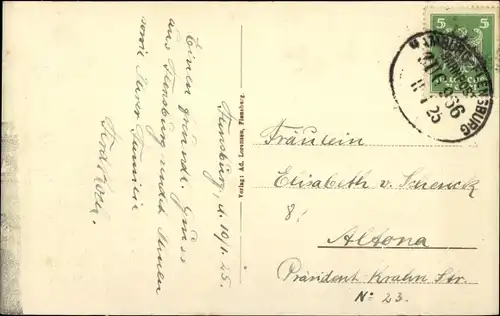 Flensburg, d. 10/1. 25.
Einen freundl. Gruss
aus Flensburg sendet Ihnen
sowie Ihrer Familie
Verlag: Ad. Lorenzen, Flensburg.
5 5
FLENSBURG
BAHNPOST
ZUG 966
11 1 25
Fräulein
Elisabeth v. Schenck
Altona
Präsident Krahn Str.
No 23.